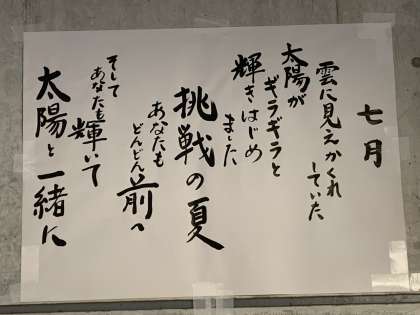 七月
雲に見えかくれ
していた
太陽が
ギラギラと
輝きはじめ
ました
挑戦の夏
あなたも
どんどん前へ
そして
あなたも輝いて
太陽と一緒に